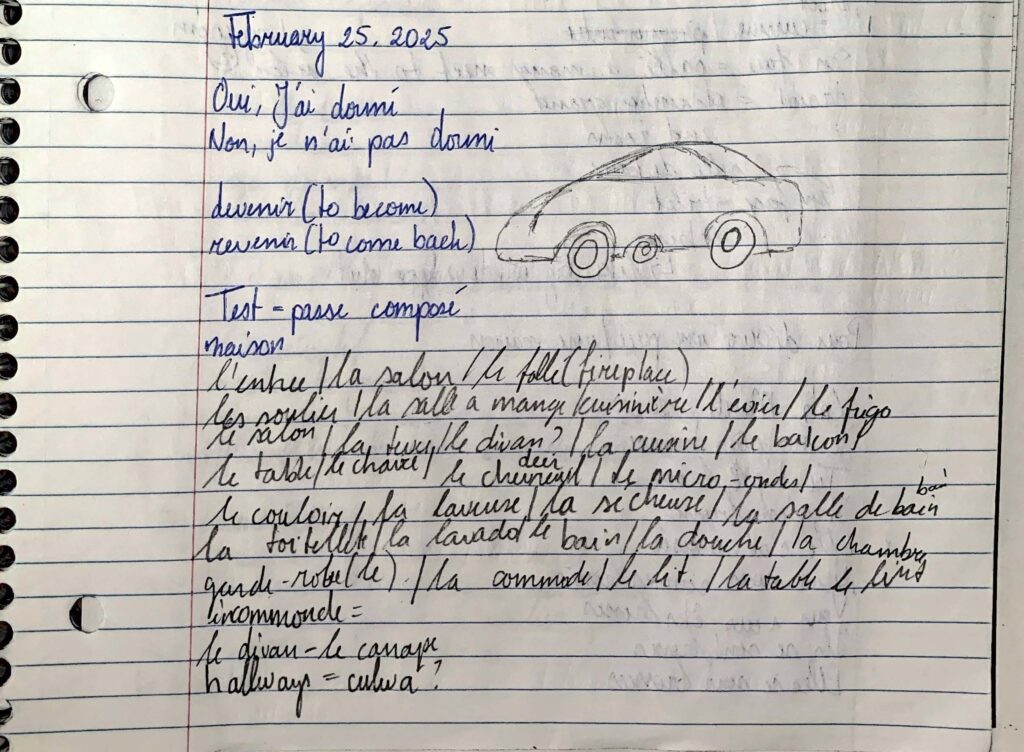 February 25, 2025
Oui, J'ai dormi
Non, je n'ai pas dormi
devenir (to become)
revenir (to come back)
Test = passe composé
maison
l'entree / la salon / le (fireplace)
les soulier / la salle a mange / cuisinière / l'évier / le frigo
le salon / la / le divan? / la cuisine / le balcon /
le table / le chaise / le chevreuil deer / le micro-ondes /
le couloir / la laveuse / la sécheuse / la salle de bain bain
la toitellet / la lavado / le bain / la douche / la chambre
garde-robe (le) / la commode / le lit. / la table le
le divan - le canape
hallways = culwa?